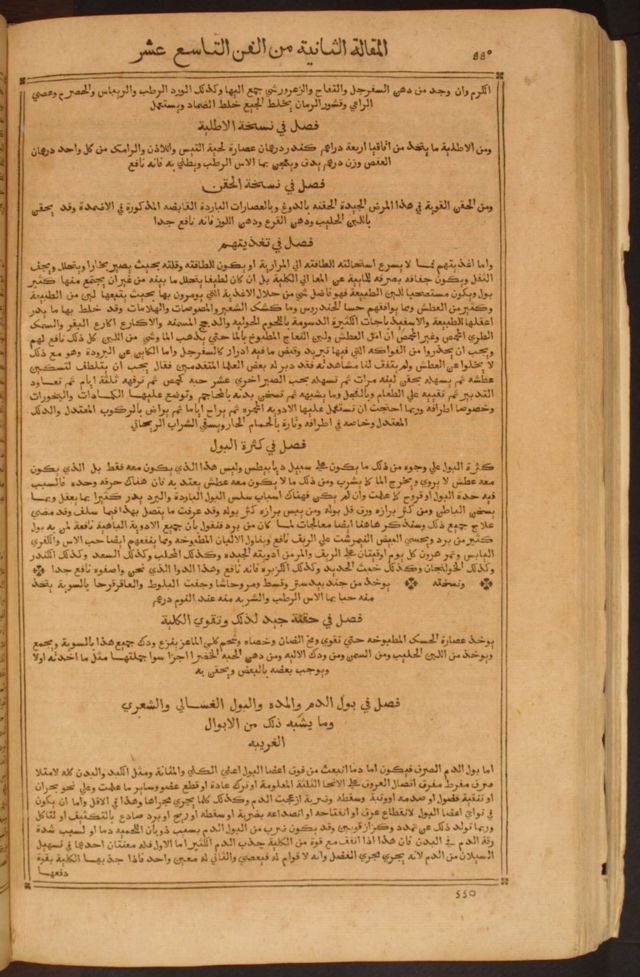 ٥٥٠
المقالة الثانية من الفن التاسع عشر
الكرم وان وجد من دهن السفرجل والتفاح والزعرور شي جمع اليها وكذلك الورد الرطب والريباس والحصرم وعصي
الراعي وقشور الرمان يخلط الجميع خلط الضماد ويستعمل
فصل في نسخة الاطلية
ومن الاطلية ما يتخذ من اقاقيا اربعة دراهم كندر درهمان عصارة لحية التيس واللاذن والرامك من كل واحد درهمان
العفص وزن درهم يدق ويعجن بما الاس الرطب ويطلي به فانه نافع
فصل في نسخة الحقن
ومن الحقن القوية في هذا المرض الجيدة الحقنه بالدوغ وبالعصارات الباردة القابضه المذكورة في الاضمدة وقد يحقن
باللبن الحليب ودهن القرع ودهن اللوز فانه نافع جدا
فصل في تغذيتهم
واما اغذيتهم فما لا يسرع استحالته الطافته الي المرارية او يكون للطافته وقلته بحيث يصير بخارا ويتحلل ويجف
الثفل ويكون جفافه بصرفه المايية عن المعا الي الكلية بل ان كان لطيفا يتحلل ما ييته من غير ان يجتمع منها كثير
بول ويكون مستصحبا للين الطبيعة فهو فاضل شي من خلال الاغذية التي يومرون بها بحيث يتبعها لين من الطبيعة
وكثير من العطش ومما يوافقهم حسا الخندروس وما كشك الشعير والمصوصات والهلامات وقد خلط بها ما يدر
اعقلها للطبيعة والاسفيدباجات الكثيرة الدسومة باللحوم الحوليه والدجج المسمنه والاكارع اكارع البقر والسمك
الطري الحمض وغير الحمض ان امل العطش ولبن النعاج المطبوخ بالما حتي يذهب الما وشي من اللبن كل ذلك نافع لهم
ويجب ان يحذروا من الفواكه التي فيها تبريد وقبض ما فيه ادرار كالسفرجل واما الكاين عن البرودة وهو مع ذلك
لا يخلوا عن العطش ولم يتفق لنا مشاهدته فقد دبر له بعض العلما المتقدمين فقال يجب ان يتلطف لتسكين
عطشه ثم يسهله بحقن لينه مرات ثم تسهله بحب الصبر اخري عشر حبة كحمص ثم ترفهه ثلثة ايام ثم تعاود
التدبير ثم تقييه علي الطعام وبالفجل وما يشبهه ثم تسخن بدنه بالمحاجم وتوضع عليها الكمادات والبخورات
وخصوصا اطرافه وربما احتجت ان تستعمل عليها الادويه المحمره ثم يراح اياما ثم يراض بالركوب المعتدل والدلك
المعتدل وخاصه في اطرافه وتارة بالحمام الحار ويسقي الشراب الريحاني
فصل في كثرة البول
كثرة البول علي وجوه من ذلك ما يكون علي سبيل ديابيطس وليس هذا الذي يكون معه فقط بل الذي يكون
معه عطش لا يروي ويخرج الما كما يشرب ومن ذلك ما لا يكون معه عطش يعتد به فان هناك حرقه وحده فالسبب
فيه حدة البول او قروح كما علمت وان لم يكن فهناك اسباب سلس البول الباردة والبرد يدر كثيرا بما يعقل وبما
يسخن الباطن ومن كثر برازه ورق قل بوله ومن يبس برازه كثر بوله وقد عرفت ما يتصل بهذا فيما سلف وقد مضي
علاج جميع ذلك وسنذكر هاهنا ايضا معالجات لما كان من برد فنقول بان جميع الادويه الباهية نافعة لمن به بول
كثير من برد ويحسي البيض النيمرشت علي الريق نافع ويناول الالبان المطبوخه ومما ينفعهم ايضا حب الاس والكمثري
اليابس وتمر هرون كل يوم اوقيتان علي الريق والمر من ادويته الجيده وكذلك المحلب وكذلك السعد وكذلك الكندر
وكذلك الخولنجان وكذلك خبث الحديد وكذلك الكزبره فانه نافع وهذا الدوا الذي نحن واصفوه نافع جدا
ونسخته يوخذ من جند بيدستر وقسط ومر وحاشا وجفت البلوط والعاقرقرحا بالسوية يتخذ
منه حبا بما الاس الرطب والشربه منه عند النوم درهم
فصل في حقنة جيد لذلك وتقوي الكلية
يوخذ عصارة الحسك المطبوخه حتي تقوي ومخ الضان وخصاه وشحم كلي الماعز ينزع ودك جميع هذا بالسوية ويجمع
ويوخذ من اللبن الحليب ومن السمن ومن ودك الاليه ومن دهن الحبه الخضرا اجزا سوا جملتها مثل ما اخذته اولا
ويوجب بعضه بالبعض ويحقن به
فصل في بول الدم والمده والبول الغسالي والشعري
وما يشبه ذلك من الابوال
الغريبه
اما بول الدم الصرف فيكون اما دما انبعث من فوق اعضا البول اعني الكلي والمثانة ومثل الكبد والبدن كله لامتلا
صرف مفرط مفرق اتصال العروق علي الانحا الثلثة المعلومة او ترك عادة او قطع عضو وساير ما علمت وعلي نحو بحران
او تنقية فضول او صدمه او وثبة وسقطه وضربة ازعجت الدم وكذلك كلما يجري مجراها وهذا في الاقل واما ان يكون
في نواحي اعضا البول لانقطاع عرق او انفتاحه او انصداعه بضربة او سقطه او ريح او برد صادع بالتكثيف او لتاكل
وربما تولد ذلك عن تمدد وكزاز قويين وقد يكون ضرب من البول الدم بسبب ذوبان اللحميه دما او لسبب شدة
رقة الدم في البدن فان هذا اذا اتفق مع قوة من الكلية جذب الدم الكثير اما الاول فله معنتان احدهما في تسهيل
السيلان من الدم لانه يجري مجري الفضل وانه لا قوام له فيعصي والثاني له معين واحد فاذا جذبها الكلية بقوة
دفعها
550